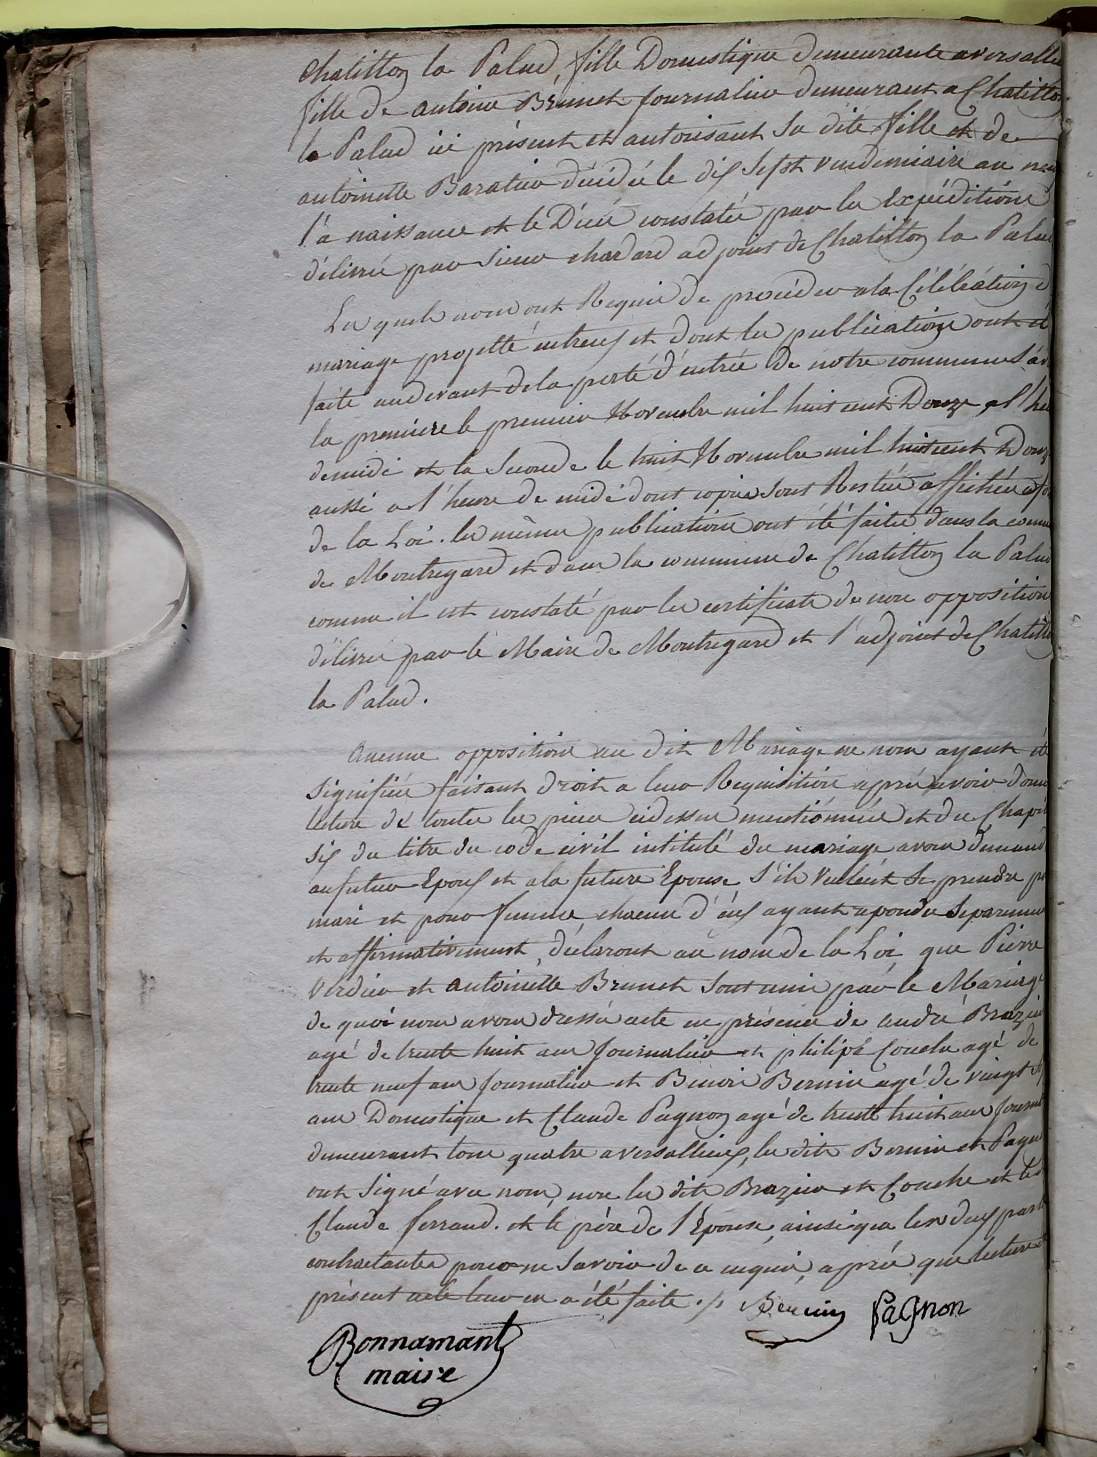 Chatillon la Palud, fille Domestique demeurante a versallieu
fille de antoine Brunet journalier demeurant a Chatillon
la Palud ici présent et autorisant sa dite fille et de
antoinette Baratier décédée le dix sept vendemiaire an
la naissance et le Décé constatée par les Expéditions
délivré par Sieur chardard adjoint de Chatillon la Palud
Les quels nous ont Requis de procéder a la Célébration
mariage projetté entreux et dont les publications ont
faite audevant de la porte d'entrée de notre commune
la premiere le premier Novembre mil huit cent Douze a l'heure
demidi et la Seconde le huit Novembre mil huit cent Douze
aussi a l'heure de midi dont copies sont Restée affichée
de la Loi. les mêmes publications ont été faites dans la comm
de Montregard et dans la commune de Chatillon la Palud
comme il est constaté par les certificats de non opposition
délivré par le Maire de Montregard et l'adjoint de Chatillon
la Palud.
Aucune opposition au dit Mariage ne nous ayant été
signifiée faisant droit a leur Requisition après avoir donné
lecture de toutes les pièces cidessus mentionnées et du Chapitre
six du titre du code civil intitulé du mariage avons demandé
aufutur Epoux et ala future Epouse S'ils veulent se prendre
mari et pour femme chacun d'eux ayant repondu separement
et affirmativement, déclarons au nom de la Loi que Pierre
Verdier et antoinette Brunet sont unis par le Mariage
de quoi nous avons dressé acte en présence de andré Brazier
agé de trente huit ans journalier et philipe Couche agé de
trente neuf ans journalier et Benoit Bernin agé de vingt
ans Domestique et Claude Pagnon agé de trente huit ans
demeurant tous quatre a versallieux, les dits Bernin et Pagnon
ont signé avec nous, non les dits Brazier et Couche et
Claude ferrand. et le père de l'Epouse, ainsi que les deux
contractantes pour ne savoir de ce enquis, après que lecture
présent acte leur en a été faite ./. Bernin Pagnon
Bonnamant
maire